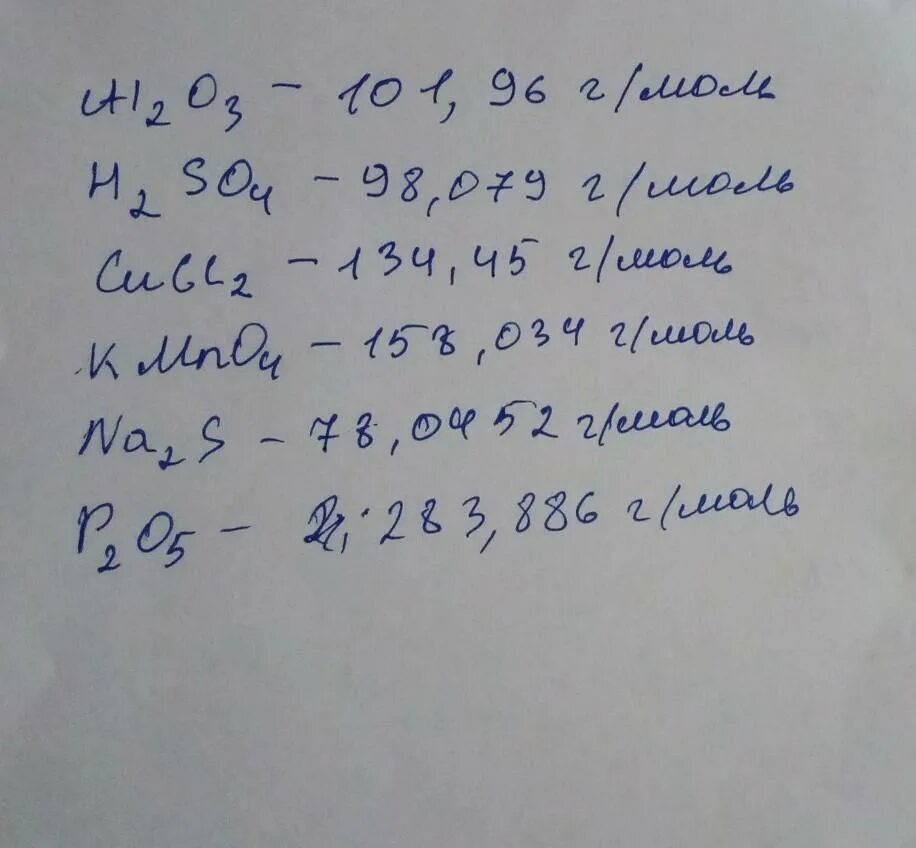 Al₂O₃ – 101,96 г/моль
H₂SO₄ – 98,079 г/моль
CuCl₂ – 134,45 г/моль
KMnO₄ – 158,034 г/моль
Na₂S – 78,0452 г/моль
P₂O₅ – 283,886 г/моль